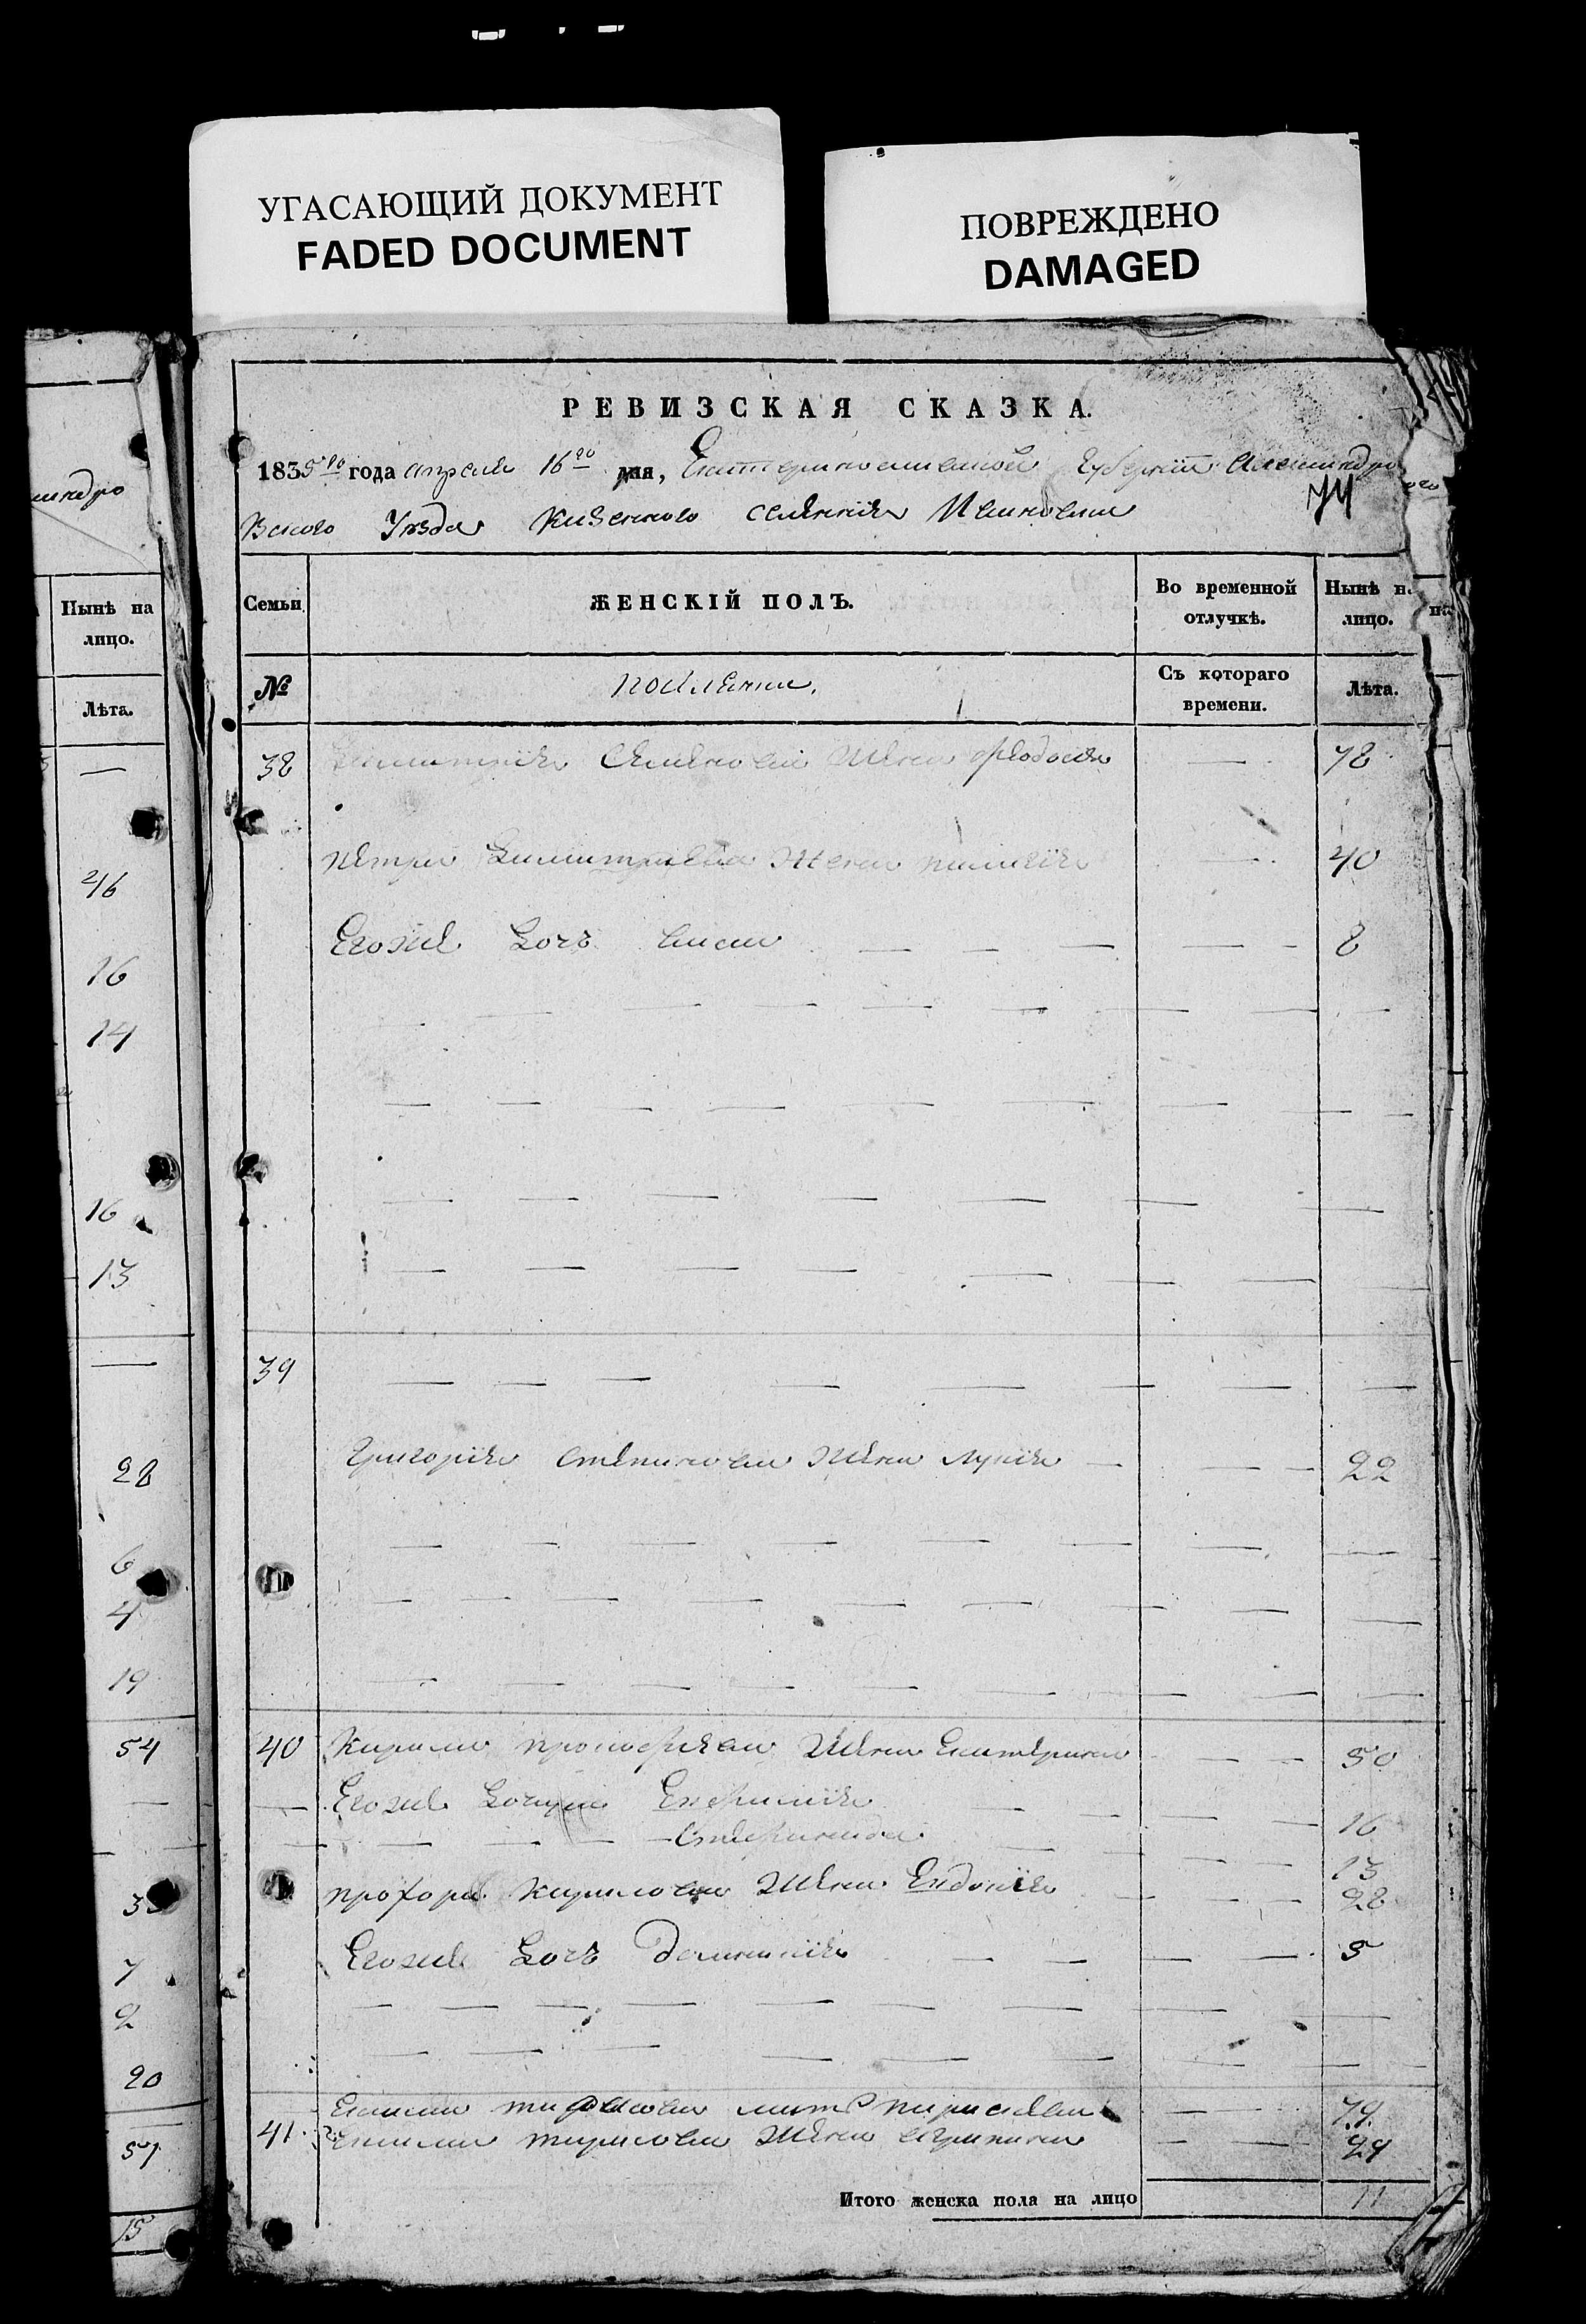 УГАСАЮЩИЙ ДОКУМЕНТ
FADED DOCUMENT
ПОВРЕЖДЕНО
DAMAGED
РЕВИЗСКАЯ СКАЗКА.
1835го года апреля 16го дня, Екатеринославской Губернии Александро
74
вскаго Уезда Казенного селения
Семьи
ЖЕНСКІЙ ПОЛЪ.
Во временной отлучкѣ.
Нынѣ на лицо.
№
Съ котораго времени.
Лѣта.
38 Димитрія Семенова жена Феодосия — 78
Петра Димитриева жена Палагія — 40
Егоже Дочь — 8
39
Григорія Степанова жена Лукія — 22
40 Кирила Прокофіева жена Екатерина — 50
Егоже Дочери Ефимія — 16
Степанида — 13
Прохора Кирилова жена Евдокія — 28
Егоже Дочь Домникія — 5
мать 79
41 Тарасова жена Агрипина 29
Итого женска пола на лицо 11
Нынѣ на лицо.
Лѣта.
—
46
16
14
16
13
—
28
6
4
19
54
7
2
20
51
15